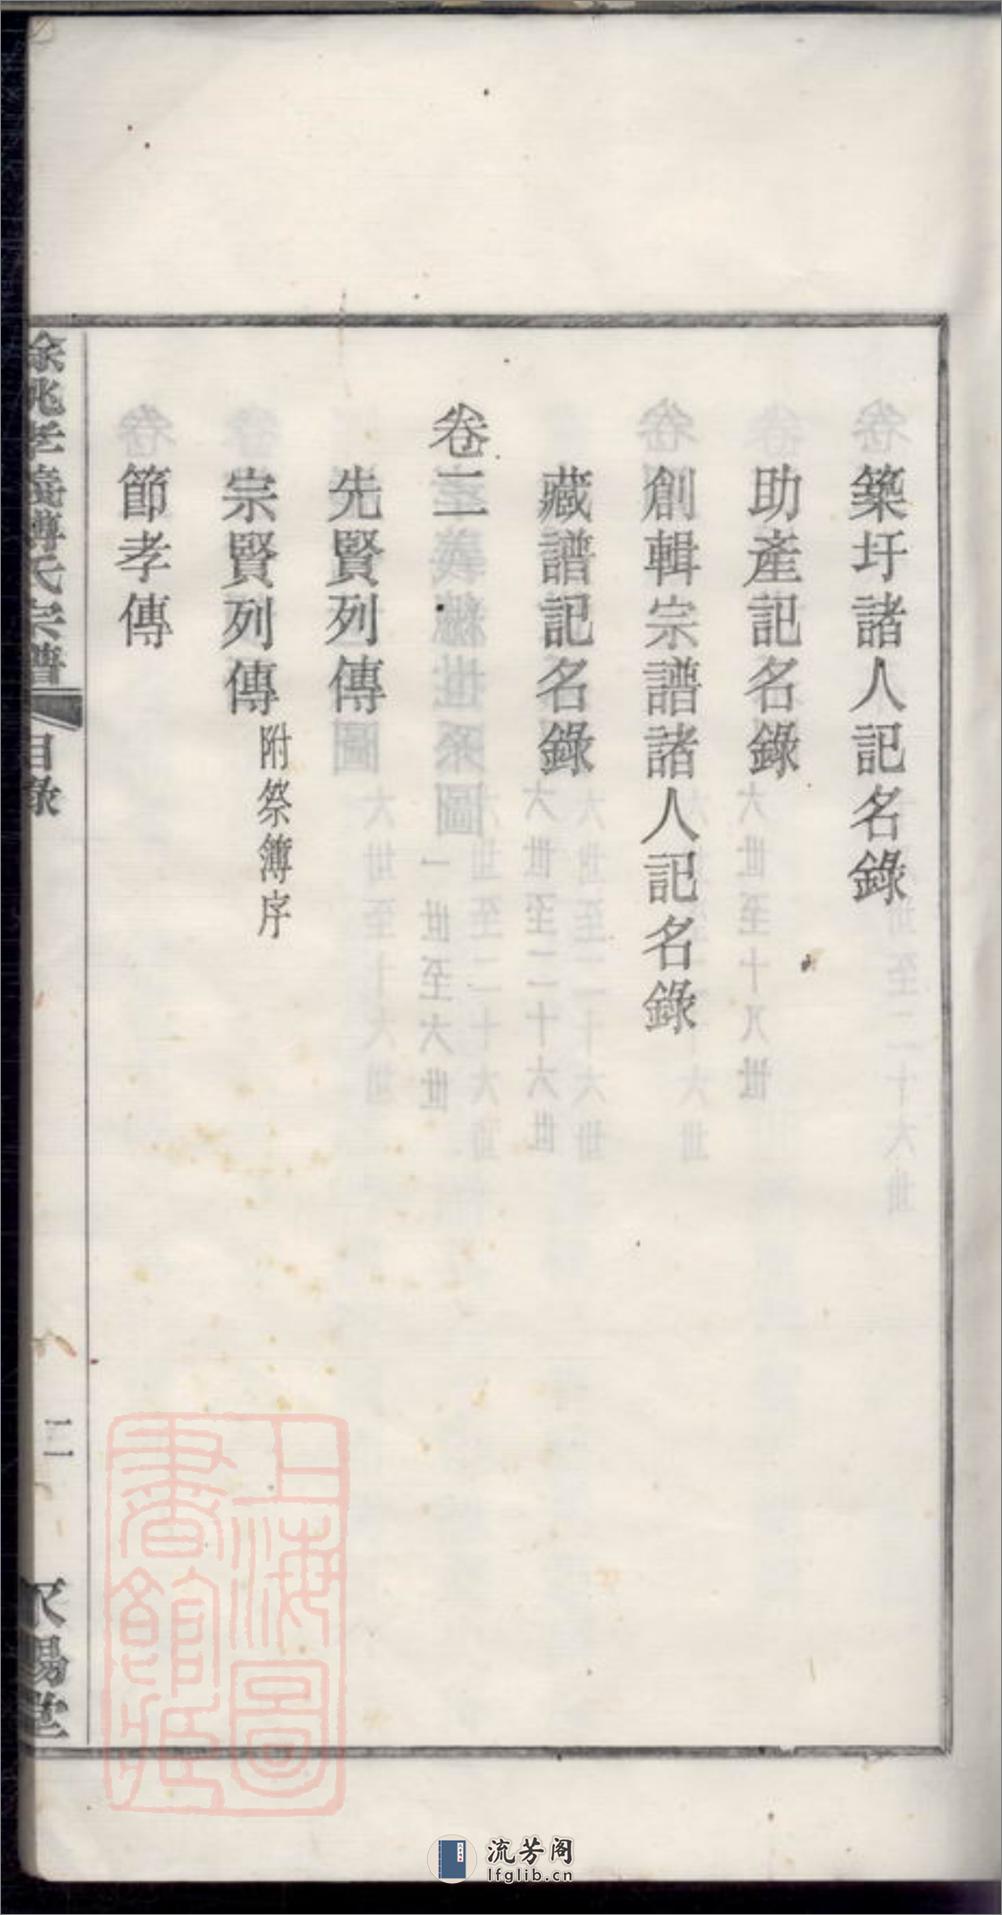 築圩諸人記名錄
助產記名錄
創輯宗譜諸人記名錄
藏譜記名錄
卷二
先賢列傳
宗賢列傳 附祭簿序
節孝傳
餘姚孝義傅氏宗譜
目錄
二
永錫堂
上海圖書館藏
流芳阁
lfglib.cn